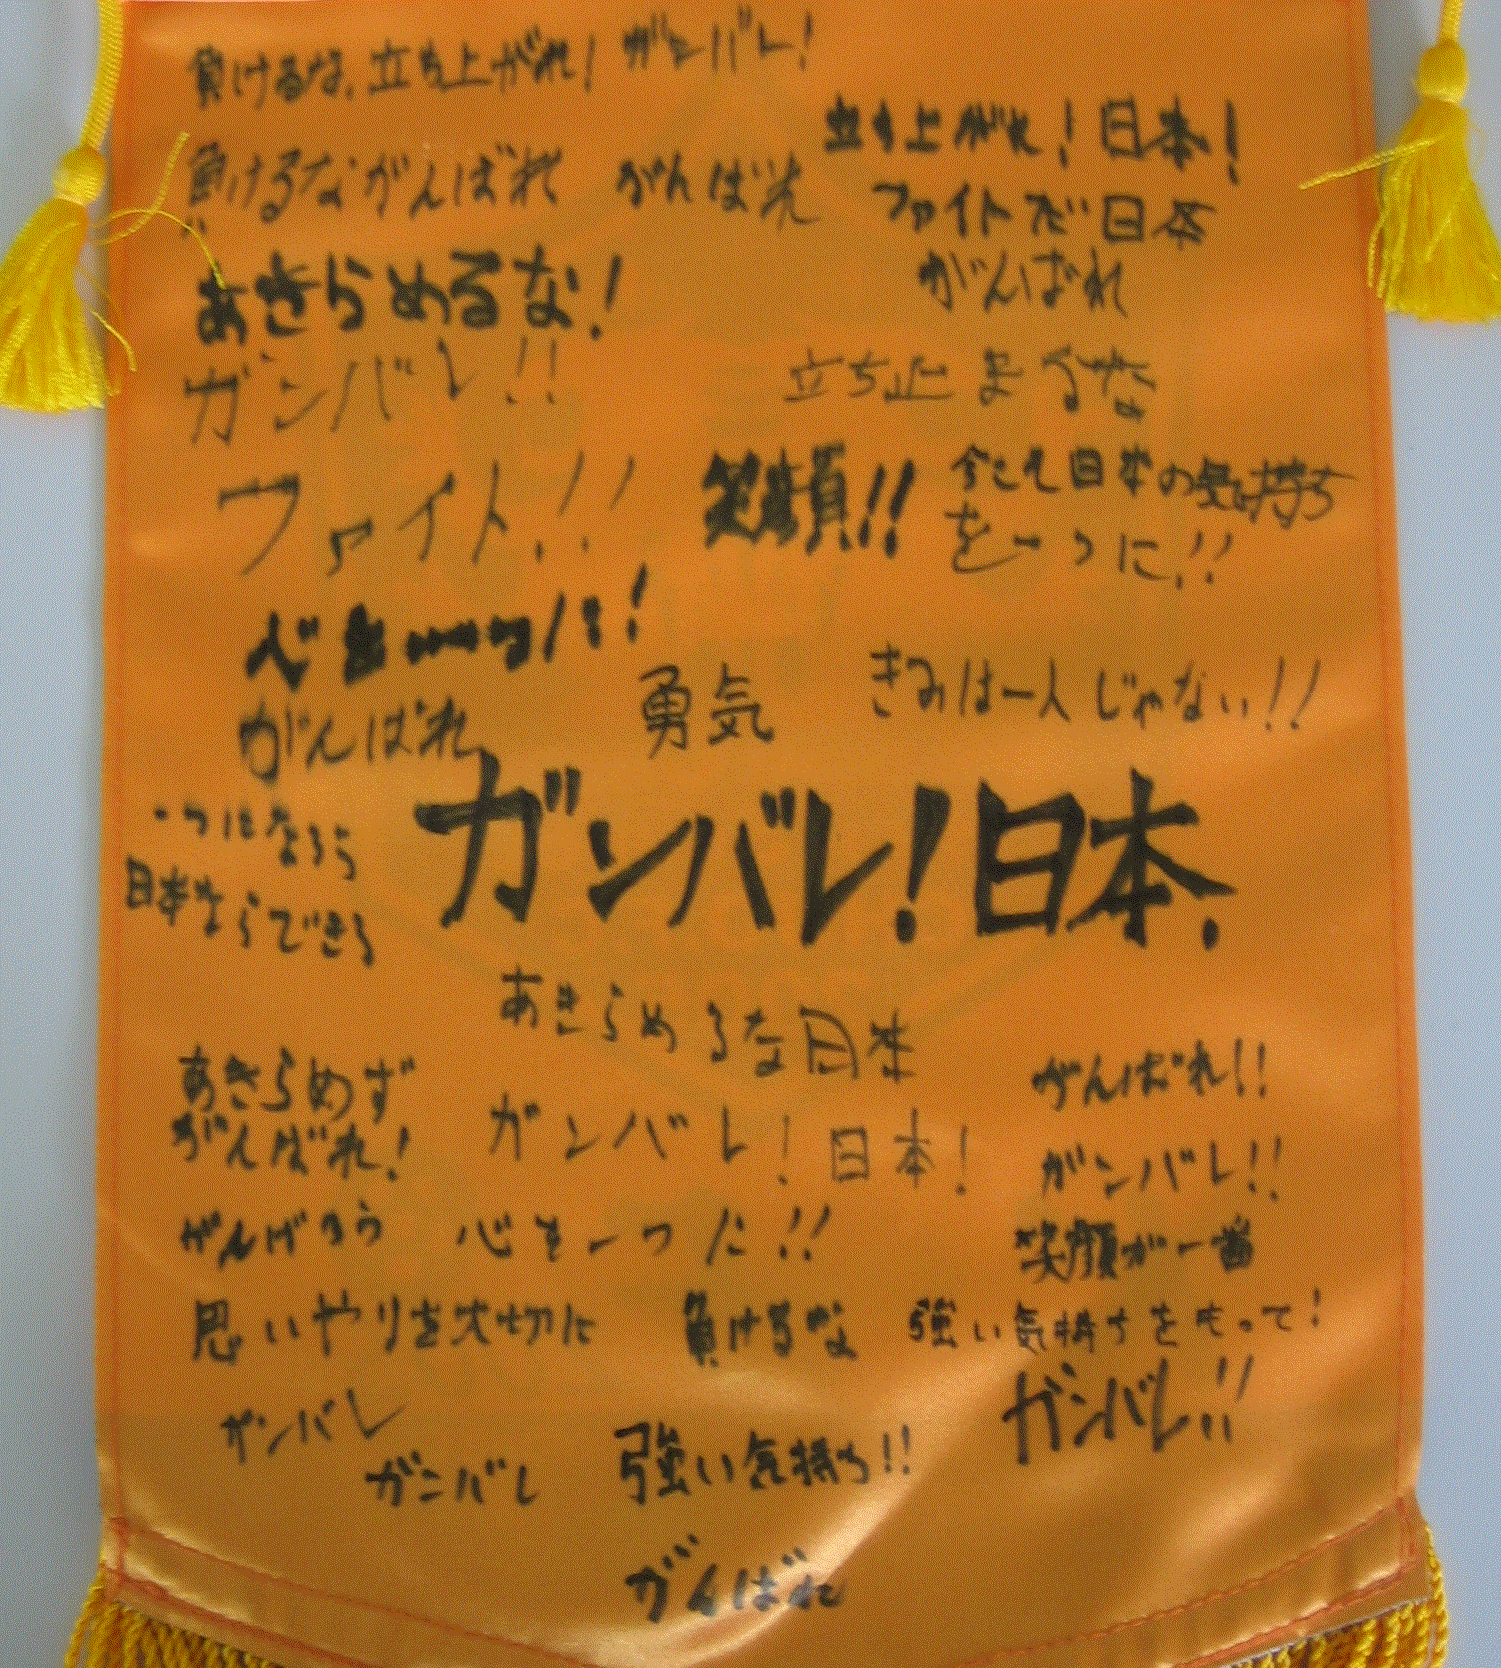 負けるな、立ち上がれ! ガンバレ!
立ち上がれ!日本!
負けるながんばれ がんばれ
ファイトだ日本
がんばれ
あきらめるな!
ガンバレ!!
立ち止まるな
ファイト!!
笑顔!!
今こそ日本の気持ち
を一つに!!
がんばれ
勇気
きみは一人じゃない!!
一つになろう
日本ならできる
ガンバレ!日本.
あきらめるな日本
あきらめず
がんばれ!
ガンバレ!日本!
がんばれ!!
ガンバレ!!
がんばろう
心を一つに!!
笑顔が一番
思いやりを大切に
負けるな
強い気持ちをもって!
ガンバレ
ガンバレ
強い気持ち!!
ガンバレ!!
がんばれ